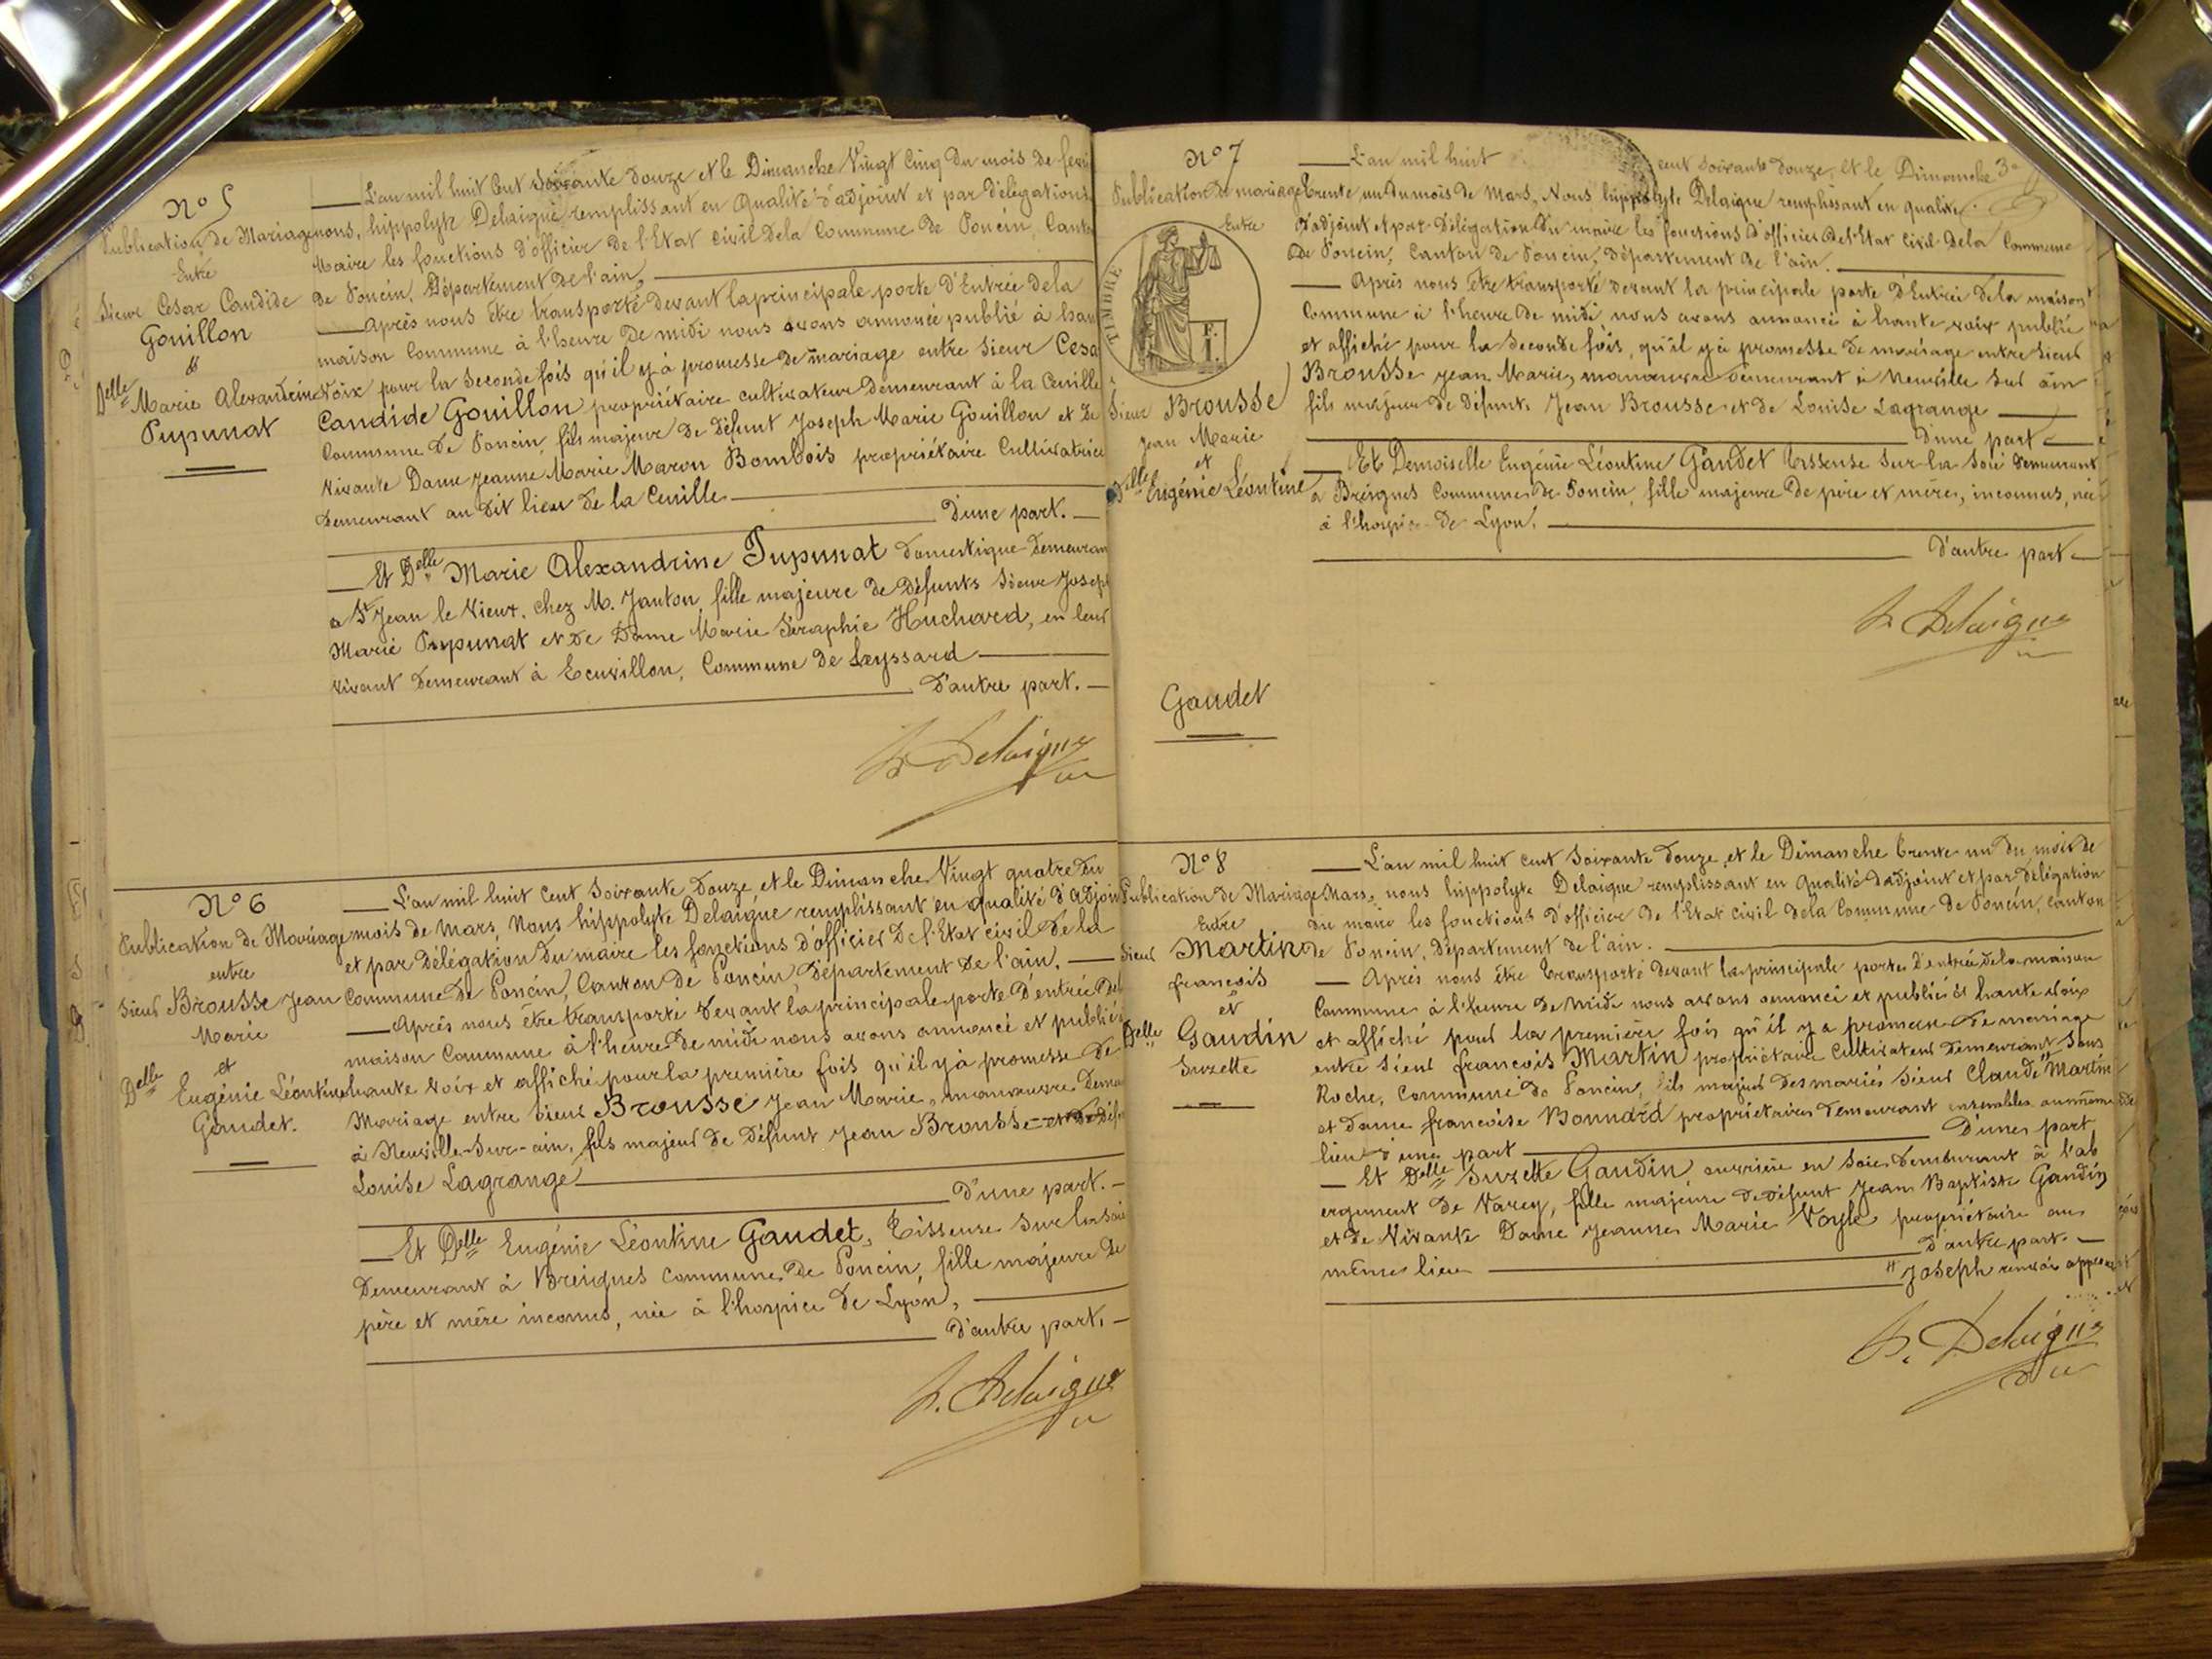 N° 5
Publication de Mariage
Entre
Sieur Cesar Candide
Gouillon
&
Delle Marie Alexandrine
Pupunat
L'an mil huit Cent Soixante douze et le Dimanche Vingt Cinq du mois de fevri
nous, hippolyte Delaigue remplissant en Qualité d'adjoint et par délégation
Maire les fonctions d'officier de l'Etat Civil de la Commune de Poncin, Canto
de Poncin, Département de l'ain,
Après nous être transporté devant la principale porte d'Entrée de la
maison Commune à l'heure de midi nous avons annoncé publié à hau
Voix pour la Seconde fois qu'il y à promesse de mariage entre Sieur Cesa
Candide Gouillon propriétaire cultivateur demeurant à la Cueille
Commune de Poncin, fils majeur de défunt Joseph Marie Gouillon et de
vivante Dame Jeanne Marie Maron Bombois propriétaire Cultivatrice
demeurant au dit lieu de la Cueille
d'une part.
Et Delle Marie Alexandrine Pupunat domestique demeuran
a St Jean le Vieux, chez M. Janton, fille majeure de défunts Sieur Josep
Marie Pupunat et de Dame Marie Séraphie Huchard, en leur
vivant demeurant à Ecuvillon, Commune de Leyssard
d'autre part.
h. Delaigue
N° 6
Publication de Mariage
entre
Sieur Brousse Jean
Marie
et
Delle Eugénie Léontine
Gaudet.
L'an mil huit Cent Soixante Douze, et le Dimanche Vingt quatre du
mois de Mars, Nous hippolyte Delaigue remplissant en qualité d'adjoin
et par délégation du maire les fonctions d'officier de l'Etat civil de la
Commune de Poncin, Canton de Poncin, Département de l'ain.
Après nous être transporté devant la principale porte d'entrée de
maison Commune à l'heure de midi nous avons annoncé et publié
haute voix et affiché pour la première fois qu'il y à promesse de
Mariage entre Sieur Brousse Jean Marie, manœuvre deme
à Neuville-Sur-ain, fils majeur de défunt Jean Brousse et de
Louise Lagrange
d'une part.
Et Delle Eugénie Léontine Gaudet, Tisseuse Sur la soi
demeurant à Breignes Commune de Poncin, fille majeure de
père et mère inconnus, née à l'hospice de Lyon,
d'autre part.
h. Delaigue
N° 7
Publication de mariage
Entre
TIMBRE
F.
I.
Sieur Brousse
Jean Marie
et
Delle Eugénie Léontine
Gaudet
L'an mil huit cent Soixante douze, et le Dimanche
trente un du mois de Mars, Nous hippolyte Delaigue remplissant en qualité
d'adjoint et par délégation du maire les fonctions d'officier de l'Etat Civil de la Commune
de Poncin, Canton de Poncin, département de l'ain.
Après nous être transporté devant la principale porte d'Entrée de la maison
Commune à l'heure de midi nous avons annoncé à haute voix publié
et affiché pour la Seconde fois, qu'il y à promesse de mariage entre Sieur
Brousse Jean Marie, manœuvre demeurant à Neuville Sur ain
fils majeur de défunt Jean Brousse et de Louise Lagrange
d'une part
Et Demoiselle Eugénie Léontine Gaudet tisseuse Sur la Soie demeurant
à Breignes Commune de Poncin, fille majeure de père et mère, inconnus, née
à l'hospice de Lyon.
d'autre part
h. Delaigue
N° 8
Publication de Mariage
Entre
Sieur Martin
françois
et
Delle Gaudin
Suzette
L'an mil huit cent Soixante douze, et le Dimanche trente un du mois de
Mars, nous hippolyte Delaigue remplissant en qualité d'adjoint et par délégation
du maire les fonctions d'officier de l'Etat civil de la Commune de Poncin, canton
de Poncin, département de l'ain.
Après nous être transporté devant la principale porte d'entrée de la maison
Commune à l'heure de midi nous avons annoncé et publié à haute voix
et affiché pour la première fois qu'il y a promesse de mariage
entre Sieur françois Martin propriétaire Cultivateur demeurant Sous
Roche, Commune de Poncin, fils majeur des mariés Sieur Claude " Martin
et dame françoise Bonnard propriétaires demeurant ensembles au même
lieu d'une part d'une part
Et Delle Suzette Gaudin ouvrière en Soie demeurant à l'ab
ergement de Varey, fille majeure de défunt Jean Baptiste Gaudin
et de Vivante Dame Jeanne Marie Vayle propriétaire au
même lieu d'autre part.
" Joseph renvoi approuvé
h. Delaigue